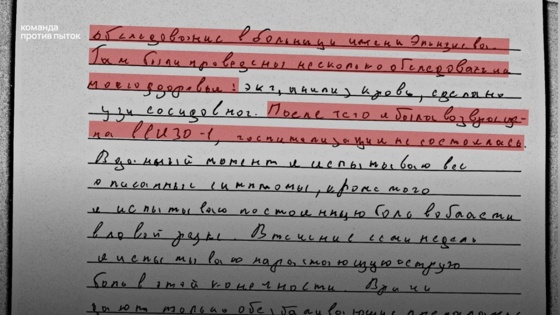 команда
против пыток
обследование в больницу имени Эпштейна.
Там были проведены несколько обследований
моего здоровья: экг, анализ крови, сделано
узи сосудов ног. После чего я была возвраще-
на в СИЗО-1, госпитализация не состоялась.
В данный момент я испытываю все
описанные симптомы, кроме того
я испытываю постоянную боль в области
в левой руке. В течение семи недель
я испытываю нарастающую острую
боль в этой конечности. Врачи
дают только обезболивающие препараты